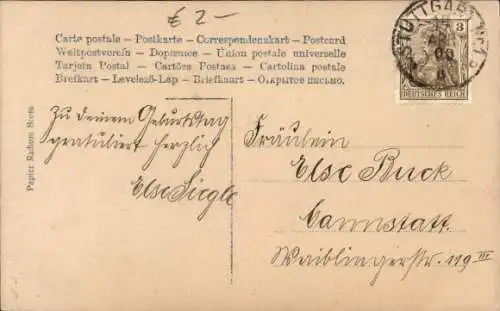 € 2-
Carte postale – Postkarte – Correspondenzkart – Postcard
Weltpostverein – Dopisnice – Union postale universelle
Tarjeta Postal – Cartões Postaes – Cartolina postale
Brefkort – Levelező-Lap – Briefkaart – Открытое письмо.
STUTTGART No 1
08
3
DEUTSCHES REICH
Zu deinem Geburtstag
gratuliert herzlich
Else Siegle
Fräulein
Else Buck
Cannstatt.
Waiblingerstr. 119 III
Papier Radium Brom